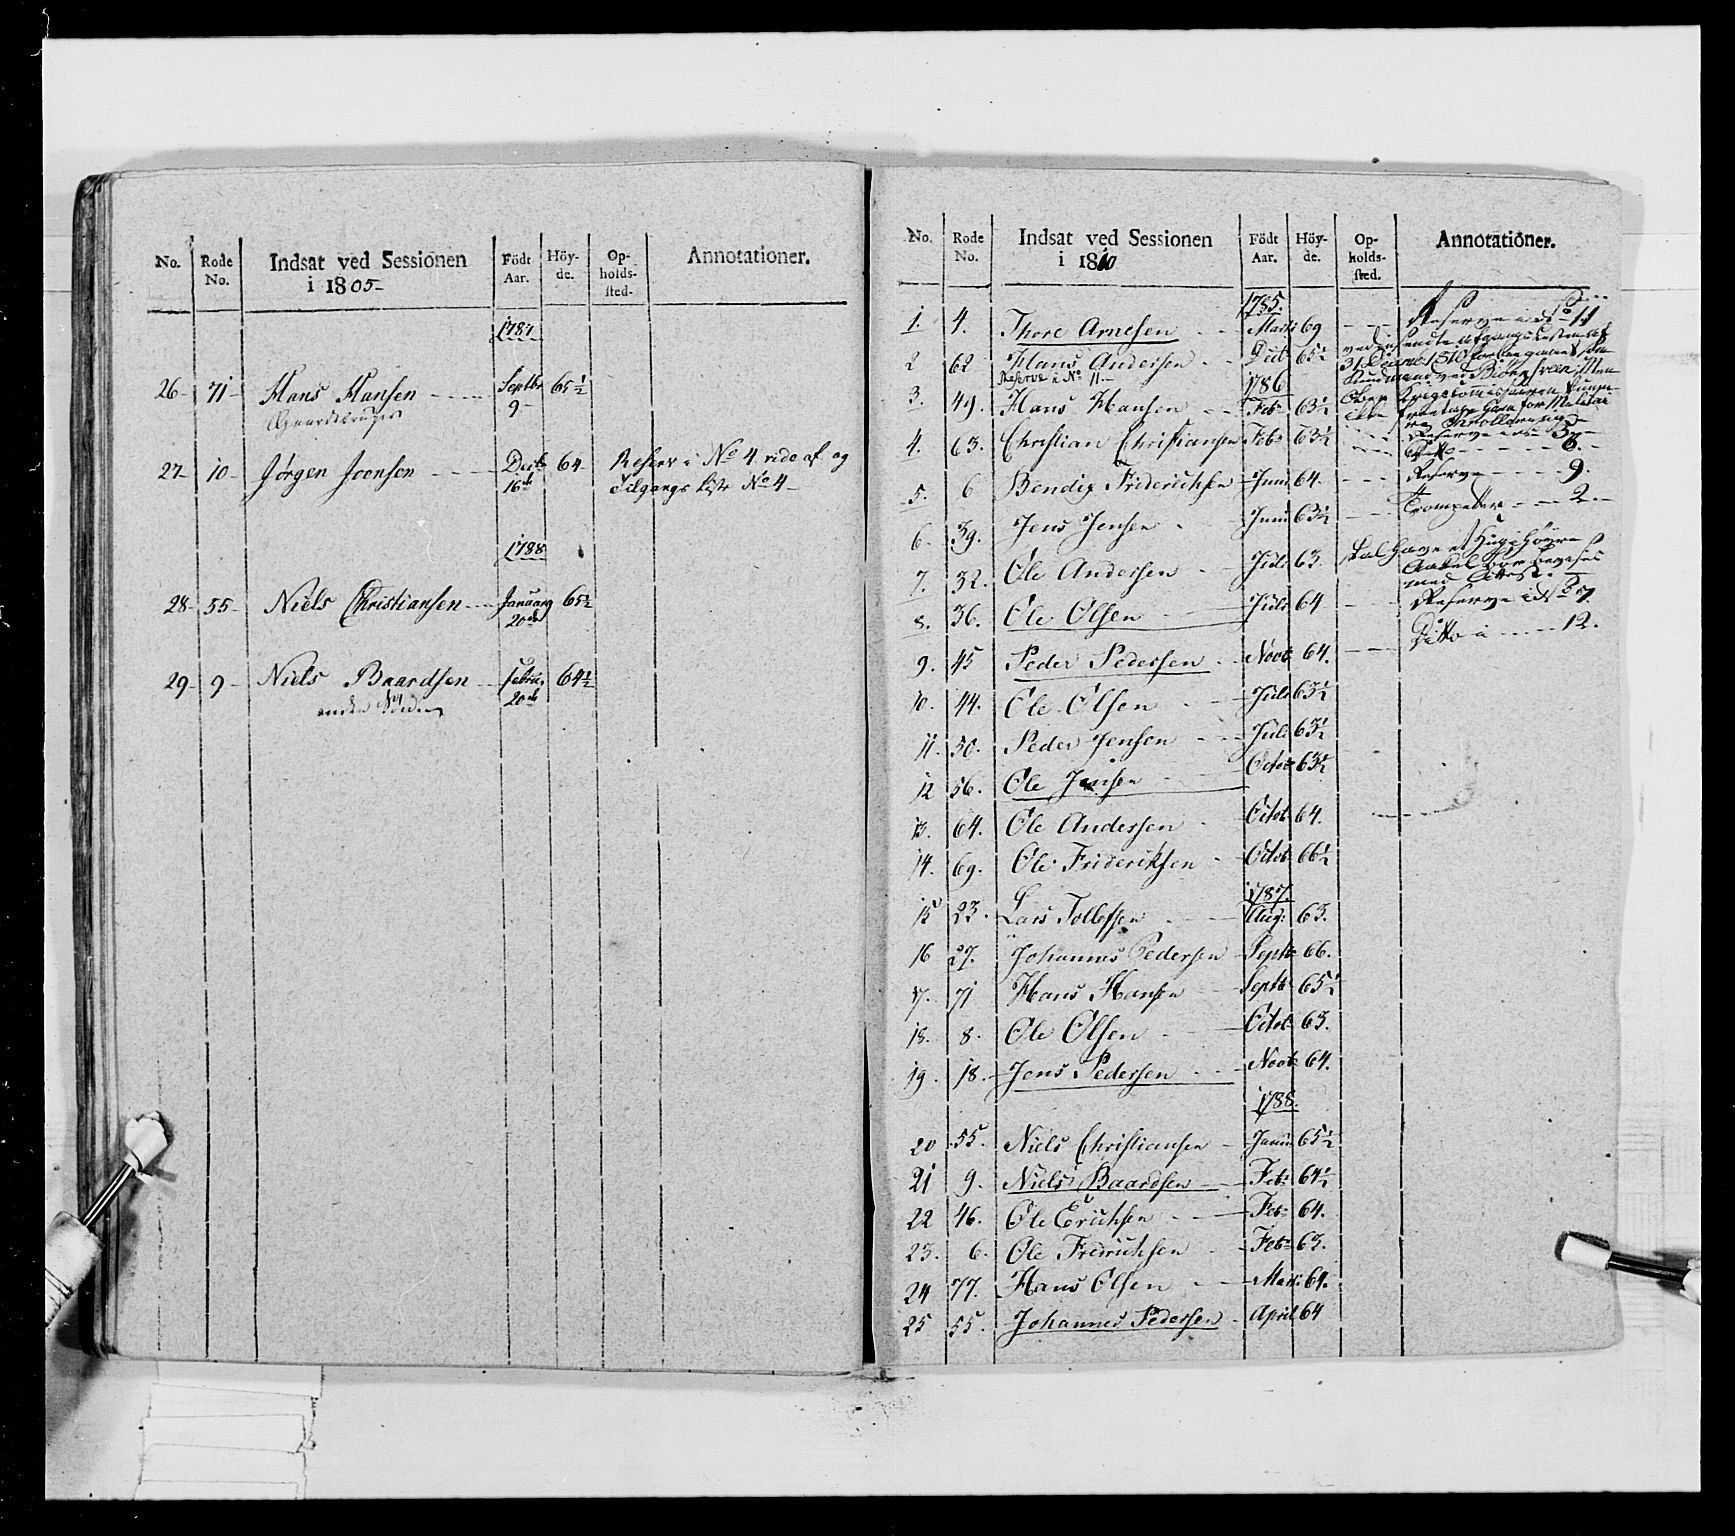 No. Rode No. Indsat ved Sessionen i 1805 Födt Aar. Höy-de. Op-holds-sted. Annotationer.
1787
26 71 Hans Hansen Septbr 9 65½
Gaardbruger
27 10 Jørgen Joensen Decb 16de 64 Reserv i No 4 vide af og
Tilgangs Liste No 4
1788
28 55 Niels Christiansen Januarij 20de 65½
29 9 Niels Baardsen Februar 20de 64½
No. Rode No. Indsat ved Sessionen i 1810 Födt Aar. Höy-de. Op-holds-sted. Annotationer.
1785
1. 4. Thore Arnesen Marti 69 Reserve i No 11
2 62 Hans Andersen Decb 65½
Reserve i No 11.
1786
3. 49. Hans Hansen Feb 63½
4. 63. Christian Christiansen Feb 63½ Reserve 3
Ditto 8.
5. 6 Bendix Friderichsen Juni 64. Reserve 9.
6. 39. Jens Jensen Juni 63½ Trompetter 2.
7. 32. Ole Andersen Juli 63. skal have et
med Attest.
8. 36. Ole Olsen Juli 64 Reserve i No 7
9. 45 Peder Pedersen Novb 64. Ditto i 12.
10. 44. Ole Olsen Juli 63½
11. 50. Peder Jensen Juli 63½
12 56. Ole Jensen Octob 63½
13. 64. Ole Andersen Octob 64.
14. 69. Ole Frideriksen Octob 66½
1787.
15 23. Lars Tollefsen Aug: 63.
16 27. Johannes Pedersen Septb 66.
17. 71 Hans Hansen Septb 65½
18. 8. Ole Olsen Octob 63.
19. 18. Jens Pedersen Novb 64.
1788.
20 55. Niels Christiansen Janu 65½
21 9. Niels Baardsen Feb 64½
22 46. Ole Erichsen Feb 64.
23. 6. Ole Fredrichsen Feb 63.
24 77. Hans Olsen Marti 64.
25 55. Johannes Pedersen April 64